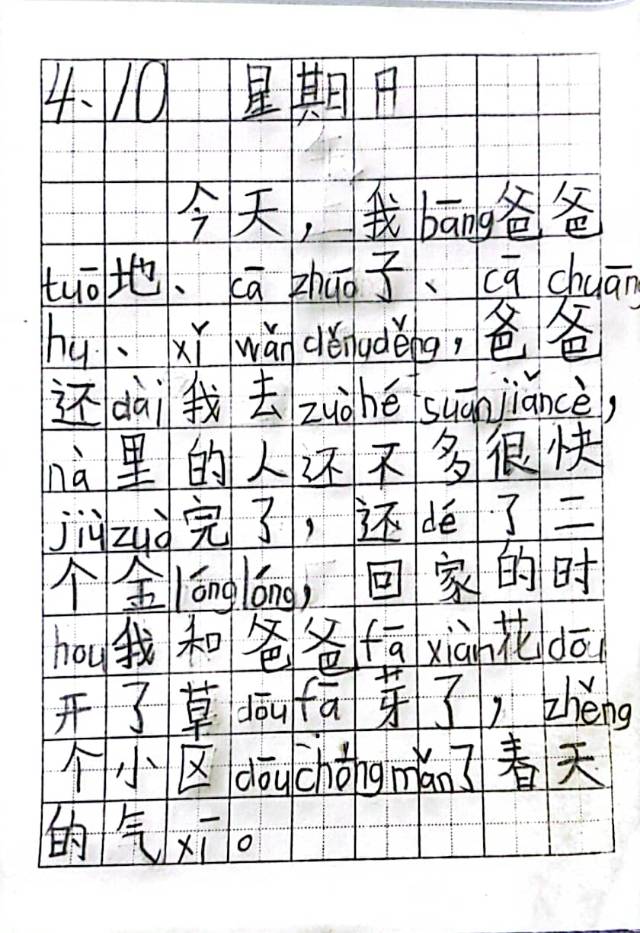 4、10 星期日
今天，我bāng爸爸
tuō地、cā zhuō子、cā chuāng
hu、xǐ wǎn děngděng，爸爸
还dài我去zuò hé suānjiǎncè，
nà里的人还不多很快
jiùzuò完了，还dé了二
个金lónglóng，回家的时
hou我和爸爸fā xiàn花dōu
开了草dōu fā芽了，zhěng
个小区dōuchōngmǎn了春天
的气xī。